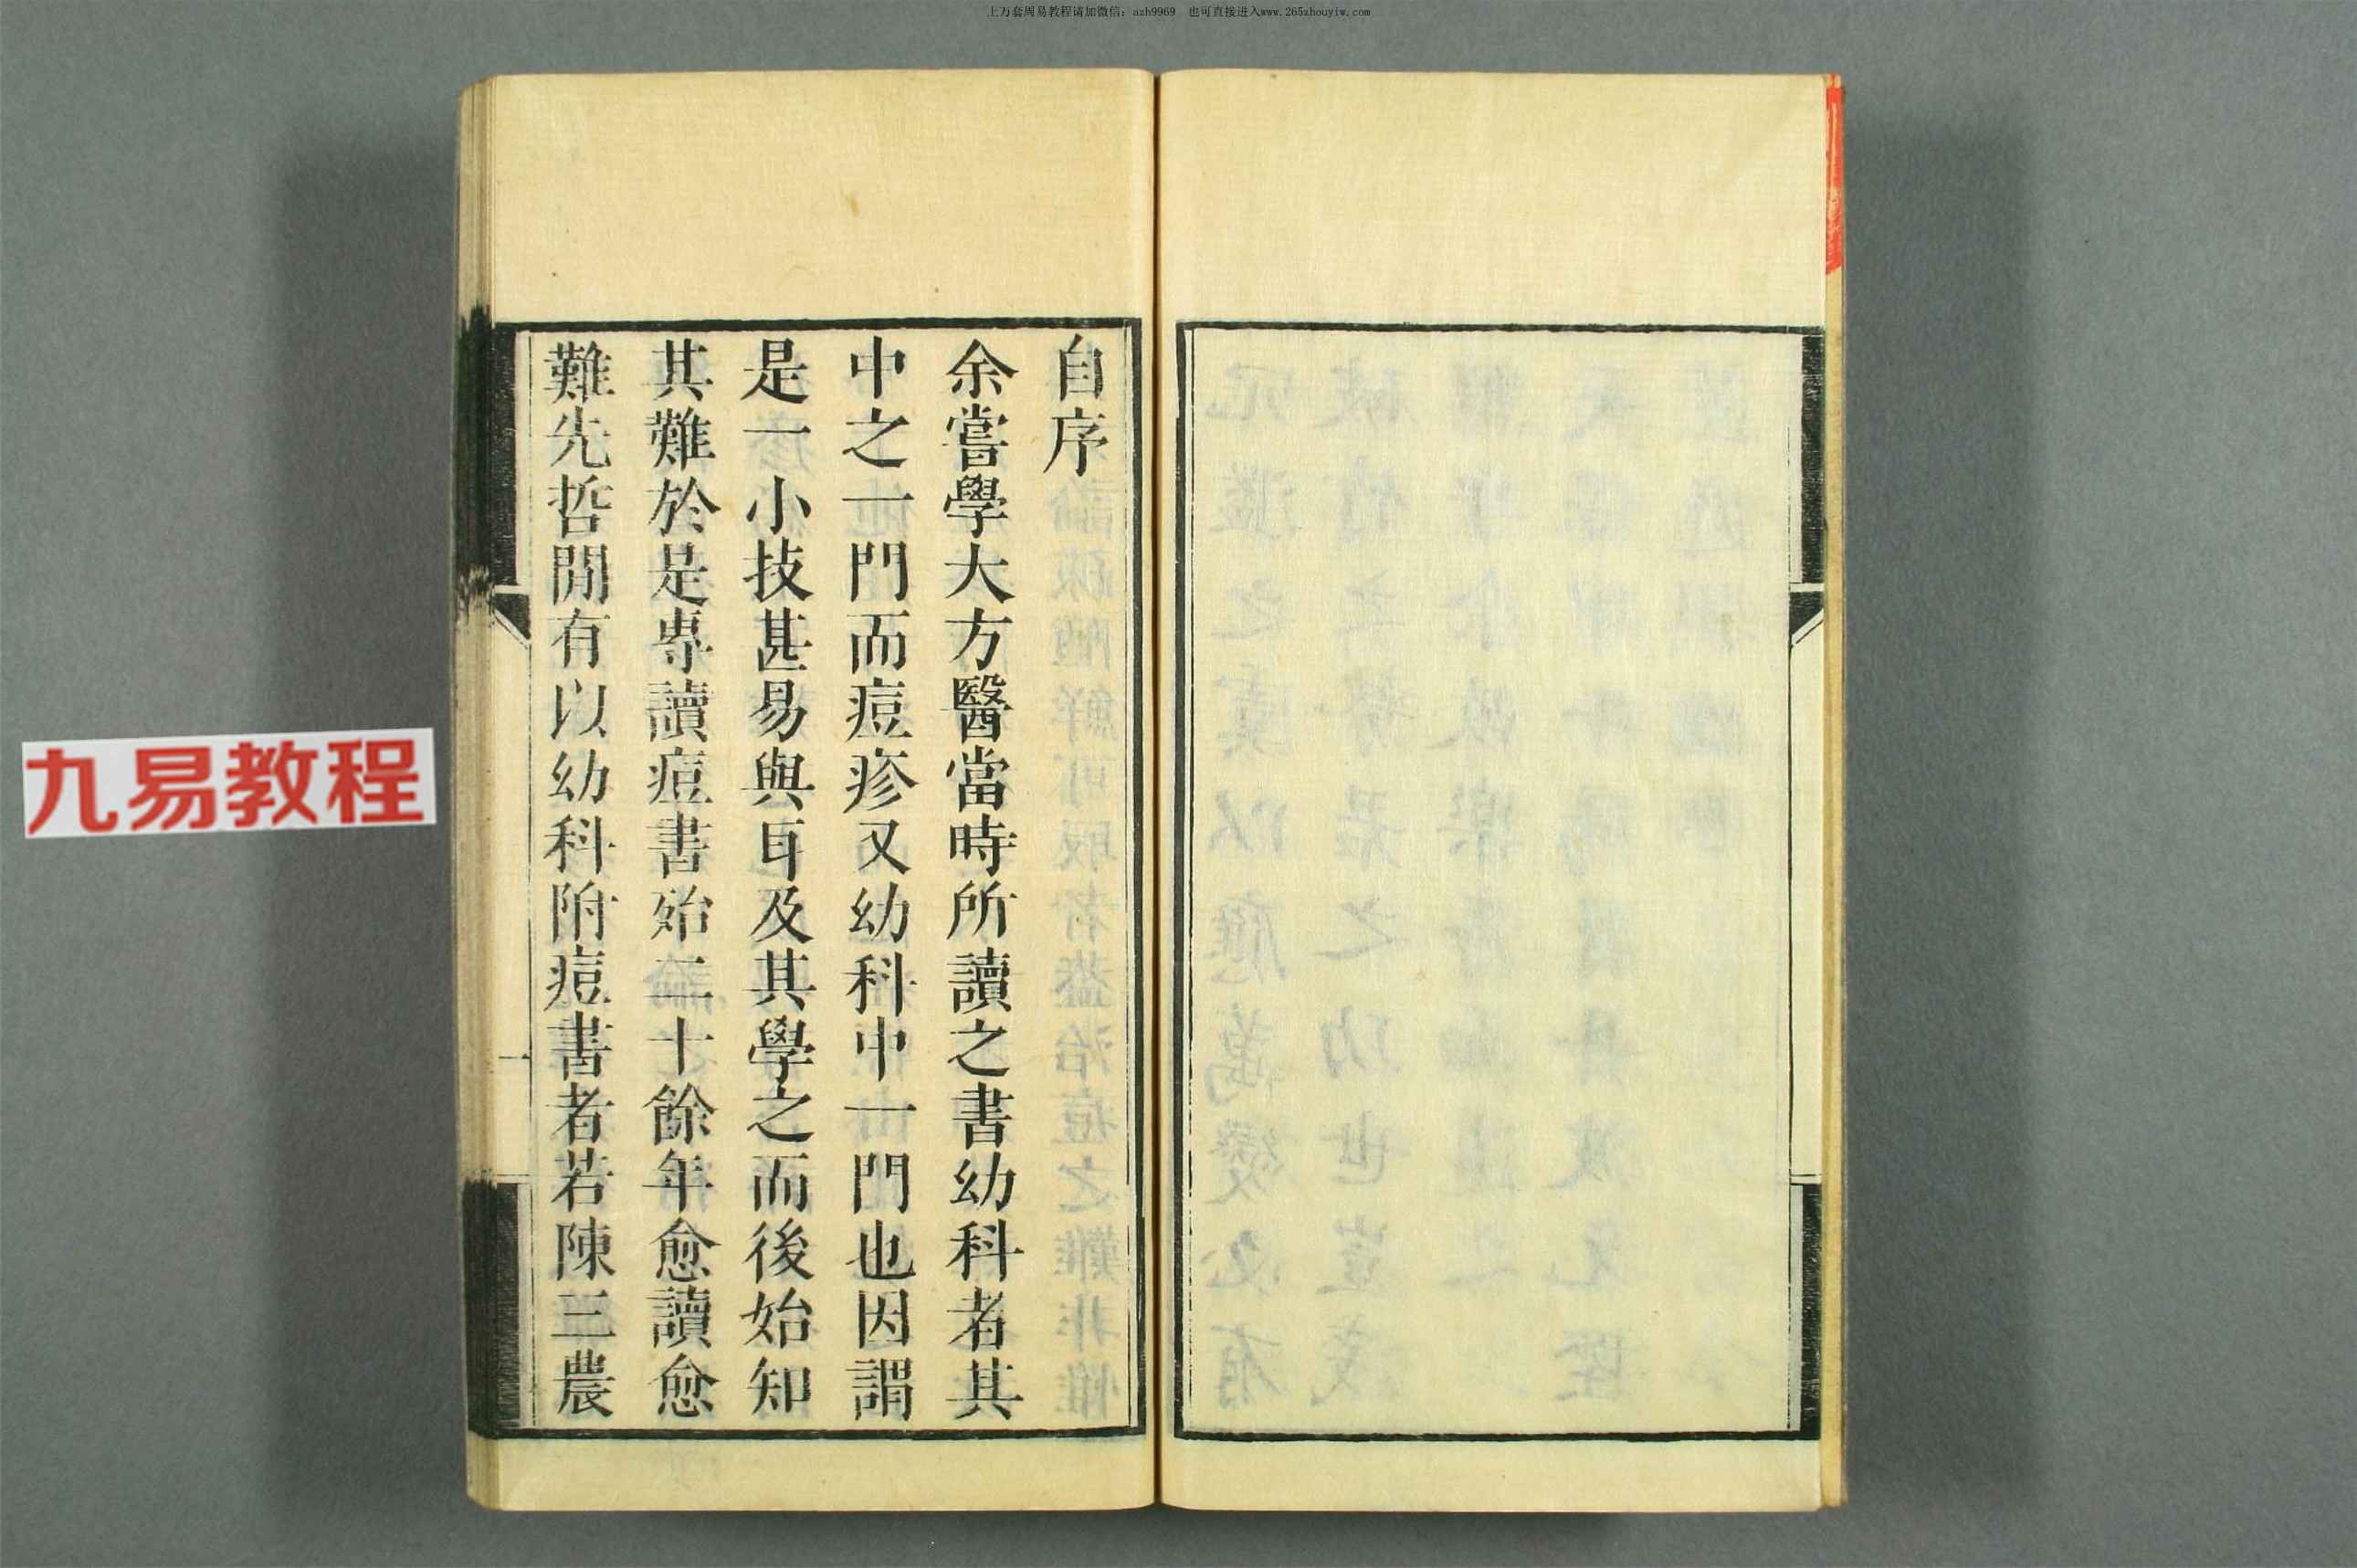 上万套周易教程请加微信：azh9969 也可直接进入www.265zhouyiw.com
自序
余嘗學大方醫當時所讀之書幼科者其
中之一門而痘疹又幼科中一門也因謂
是一小技甚易與耳及其學之而後始知
其難於是專讀痘書殆二十餘年愈讀愈
難先哲閒有以幼科附痘書者若陳三農
一
九易教程